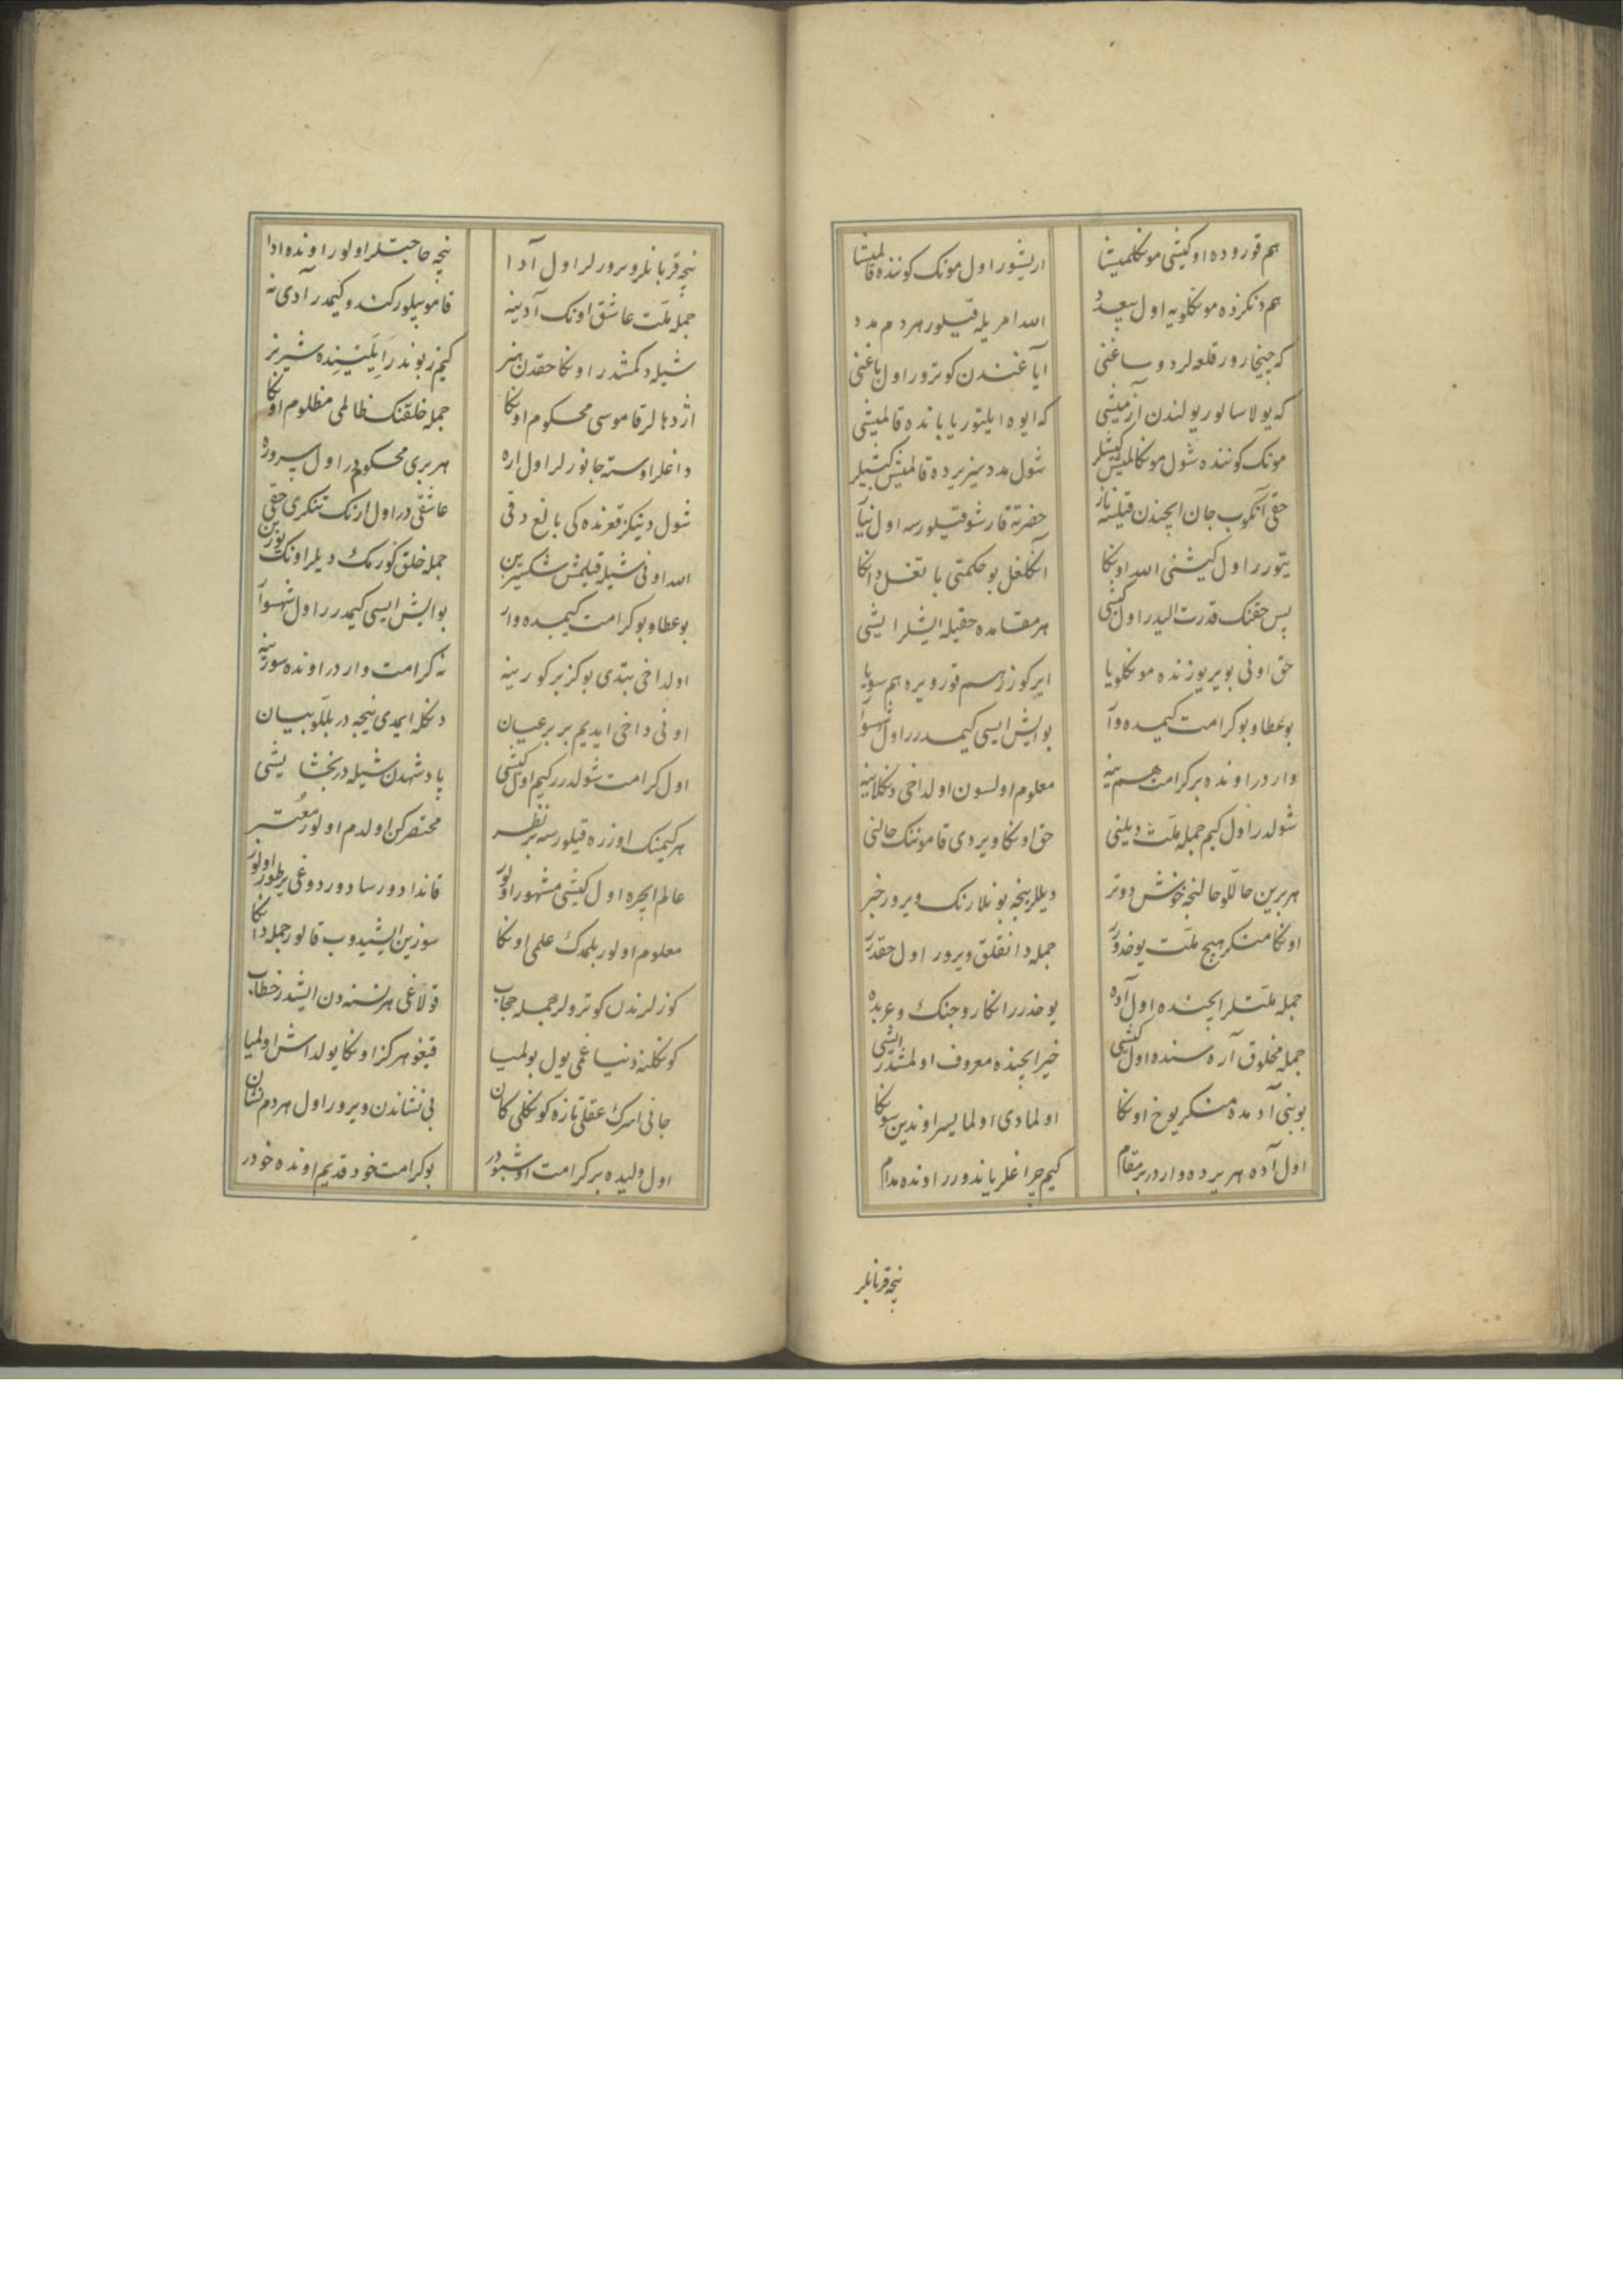 هم قوروده او کیشی مونکلمیشا
اریشور اول مونک کوننده قالمیشا
هم دنکزده مونکلویه اول
الله امریله قیلور هر دم مدد
که چیخارور قلعه لر دوساغنی
ایاغندن کوترور اول باغنی
که یولا سالور یولندن آزمیشی
که ایوه ایلتور یابانده قالمیشی
مونک کوننده شول مونکالمیش کیشیلر
شول مدد سیز یرده قالمیش کیشیلر
حقی آنکوب جان ایچندن قیلسه ناز
حضرته قارشو قیلورسه اول نیاز
یتورر اول کیشنی الله اونکا
آنکلغل بو حکمتی باتغل دانکا
پس حقنک قدرت الیدر اول کیشی
هر مقامده حقیله ایشلر ایشی
حق اونی بویر یوزنده مونکلویا
ایرکوزر هم قورویره هم سویا
بو عطا و بو کرامت کیمده وآر
بو ایش ایسی کیمدرر اول شهسوآر
وار در اونده بر کرامت هم ینه
معلوم اولسون اولداخی دنکلاینه
شولدر اول کیم جمله ملت دیلنی
حق اونکا ویردی قاموننک حالنی
هر برین حاللو حالنجه خوش دوتر
دیللرینجه بونلارنک ویرور خبر
اونکا منکر هیچ ملت یوخدرر
جمله دانقلق ویرور اول حقدرر
جمله ملتلر ایچنده اول آده
یوخدرر انکار و جنک و عربده
جمله مخلوق آره سنده اول کیشی
خیر ایچنده معروف اولمشدر ایشی
بو بنی آدمده منکر یوخ اونکا
اولمادی اولمایسر اوندین سونکا
اول آده هر یرده وار در بر مقام
کیم چراغلر یاندورر اونده مدام
نیچه قربانلر
نیچه قربانلر ویرورلر اول آدا
نیچه حاجتلر اولور اونده ادا
جمله ملت عاشق اونک آدینه
قامو بیلور کندو کیمدر آدی نه
شیله دکمشدر اونکا حقدن هنر
کیم زبوندر ایلینده شیر نر
اژدهالر قاموسی محکوم اونکا
جمله خلقنک ظالمی مظلوم اونکا
داغلر اوسته جانورلر اول اره
هر بری محکومدر اول سروره
شول دنیکز قعرنده کی بالغ دقی
عاشقی در اول ارنک تنکری حقی
الله اونی شیله قیلمش شکسیزین
جمله خلق کورمک دیلر اونک یوزین
بو عطا و بو کرامت کیمده وار
بو ایش ایسی کیمدرر اول شهسوآر
اولداخی بتدی بو کز بر کورینه
نه کرامت وار در اونده سوزینه
اونی داخی ایدیم بر بر عیان
دنکله ایمدی نیجه در بللو بیان
اول کرامت شولدرر کیم اول کیشی
پادشهدن شیله در بخشایشی
هر کیمنک اوزره قیلورسه بر نظر
مختصرکن اولدم اولور معتبر
عالم ایچره اول کیشی مشهور اولور
قاندا دورسا دوردوغی یر طور اولور
معلوم اولور بلمدک علمی اونکا
سوزین ایشیدوب قالور جمله دانکا
کوزلرندن کوترولر جمله حجاب
قولاغی هر نسنه دن ایشدر خطاب
کونکلنه دنیا غمی یول بولمیا
قیغو هرکز اونکا یولداش اولمیا
جانی اسرک عقلی تازه کونکلی کان
بی نشاندن ویرور اول هر دم نشان
اول ولیده بر کرامت اوشبودر
بو کرامت خود قدیم اونده خودر